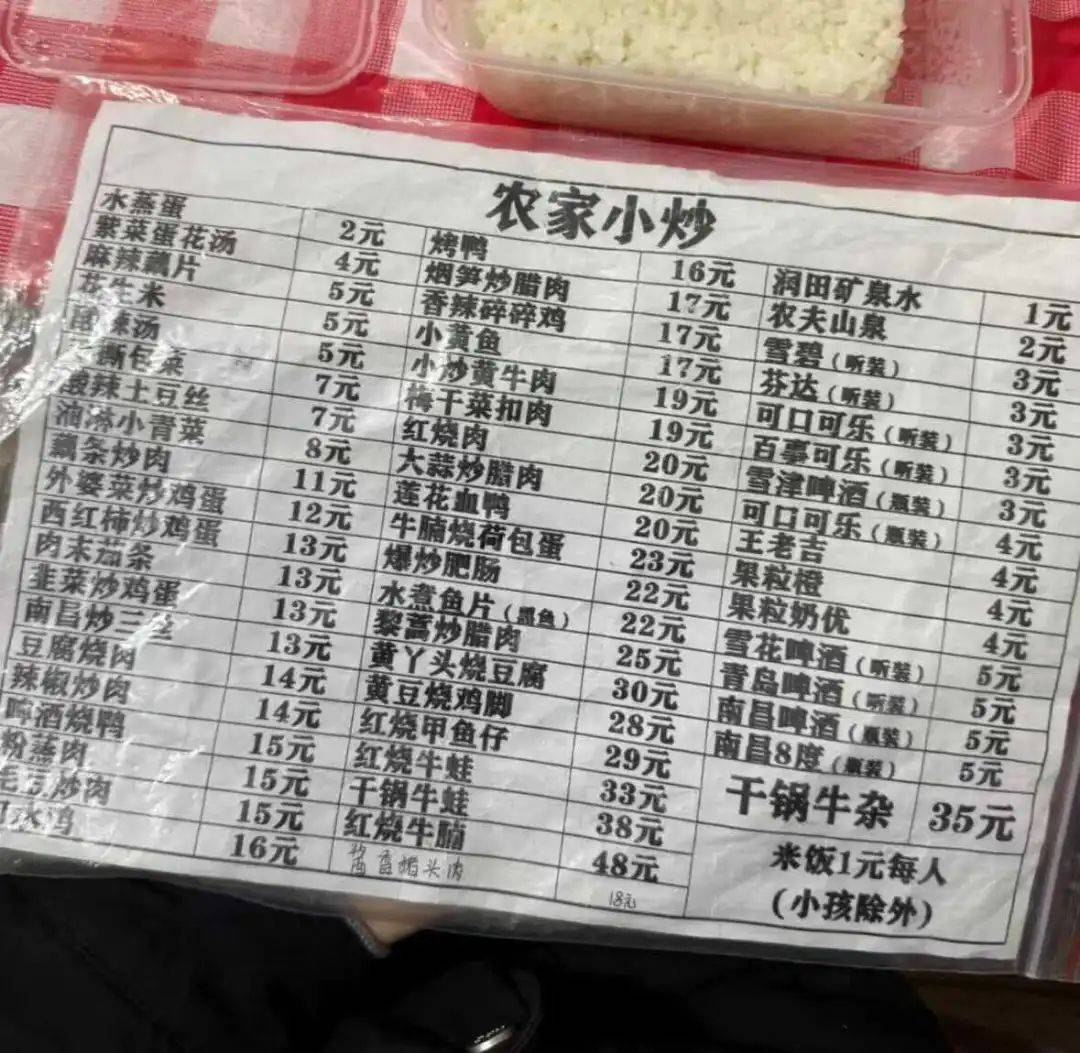 农家小炒
水蒸蛋 2元
紫菜蛋花汤 4元
麻辣藕片 5元
花生米 5元
酸辣汤 5元
撕包菜 7元
酸辣土豆丝 7元
油淋小青菜 8元
藕条炒肉 11元
外婆菜炒鸡蛋 12元
西红柿炒鸡蛋 13元
肉末茄条 13元
韭菜炒鸡蛋 13元
南昌炒三丝 13元
豆腐烧肉 14元
辣椒炒肉 14元
啤酒烧鸭 15元
粉蒸肉 15元
毛豆炒肉 15元
口水鸡 16元
烤鸭 16元
烟笋炒腊肉 17元
香辣碎碎鸡 17元
小黄鱼 17元
小炒黄牛肉 19元
梅干菜扣肉 19元
红烧肉 20元
大蒜炒腊肉 20元
莲花血鸭 20元
牛腩烧荷包蛋 23元
爆炒肥肠 22元
水煮鱼片(黑鱼) 22元
黎蒿炒腊肉 25元
黄丫头烧豆腐 30元
黄豆烧鸡脚 28元
红烧甲鱼仔 29元
红烧牛蛙 33元
干锅牛蛙 38元
红烧牛腩 48元
酱香猪头肉 18元
润田矿泉水 1元
农夫山泉 2元
雪碧(听装) 3元
芬达(听装) 3元
可口可乐(听装) 3元
百事可乐(听装) 3元
雪津啤酒(瓶装) 3元
可口可乐(瓶装) 4元
王老吉 4元
果粒橙 4元
果粒奶优 4元
雪花啤酒(听装) 5元
青岛啤酒(听装) 5元
南昌啤酒(瓶装) 5元
南昌8度(瓶装) 5元
干锅牛杂 35元
米饭1元每人
(小孩除外)